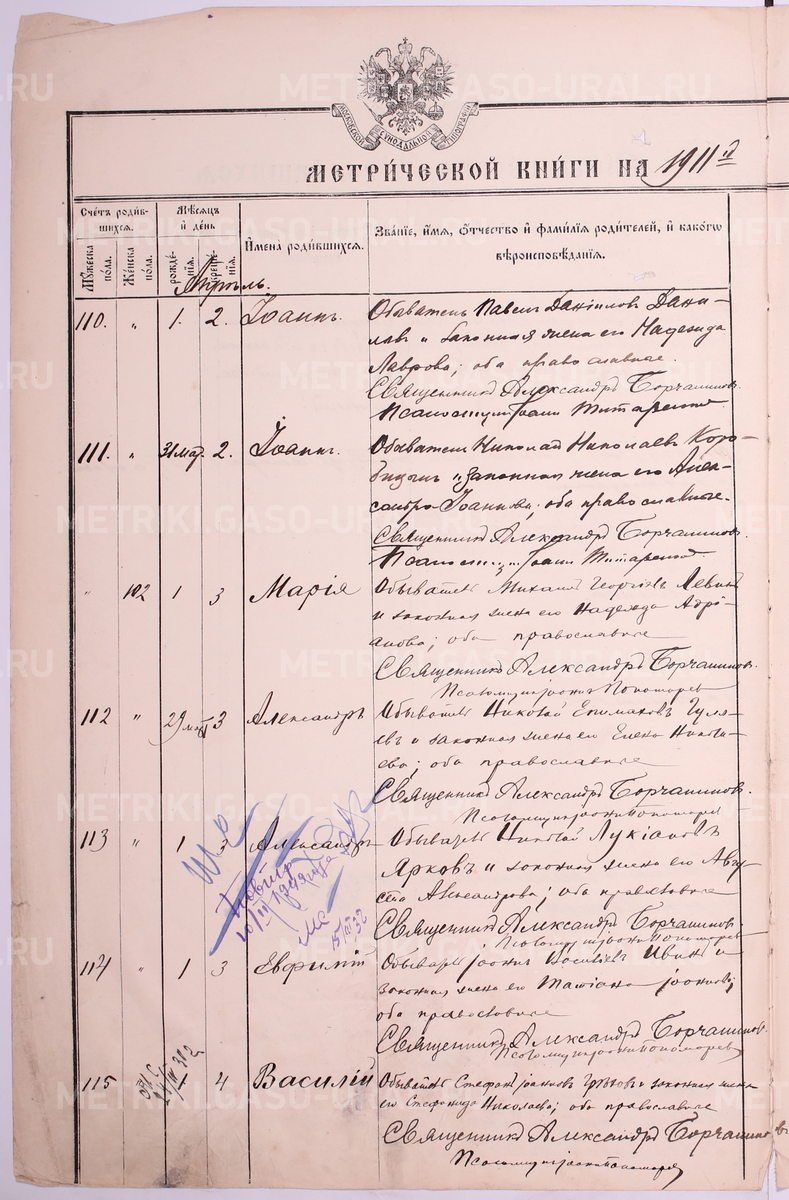 МОСКОВСКОЙ СУНОДАЛЬНОЙ ТИПОГРАФІИ
МЕТРИ́ЧЕСКОЙ КНИ́ГИ НА 1911 й
Сче́тъ роди́вшихся.
Мѣ́сяцъ и́ де́нь
И҆мена̀ роди́вшихся.
Зва́нїе, и҆́мѧ, ѻ҆́тчество и҆ фами́лїѧ роди́телей, и҆ како́гѡ
вѣроисповѣ́данїѧ.
Му́жеска по́ла.
Же́нска по́ла.
рожде́нїѧ.
креще́нїѧ.
Апрѣль.
110. " 1. 2. Іоаннъ. Обыватель Павелъ Даніиловъ Дани-
ловъ и законная жена его Надежда
Лаврова; оба православные.
Священникъ Александръ Борчаниновъ.
Псаломщикъ Іоаннъ Титаренко
111. " 31 мар. 2. Іоаннъ. Обыватель Николай Николаевъ Коро-
и законная жена его Алек-
сандра Іоаннова; оба православные.
Священникъ Александръ Борчаниновъ.
Псаломщикъ Іоаннъ Титаренко
" 102 1 3 Марія Обыватель Михаилъ Георгіевъ Левинъ
и законная жена его Надежда Адрі-
анова; оба православные
Священникъ Александръ Борчаниновъ.
Псаломщикъ Іоаннъ Пономаревъ
112 " 29 мар 3 Александръ Обыватель Николай Епимаховъ Гуля-
евъ и законная жена его Елена Никола-
ева; оба православные
Священникъ Александръ Борчаниновъ.
Псаломщикъ Іоаннъ Пономаревъ
113 " 1 3 Александръ Обыватель Николай Лукіановъ
Ярковъ и законная жена его Авгу-
ста Александрова; оба православные
Священникъ Александръ Борчаниновъ.
Псаломщикъ Іоаннъ Пономаревъ
114 " 1 3 Евфимій Обыватель Іоаннъ Васильевъ Ивинъ и
законная жена его Татіана Іоаннова;
оба православные
Священникъ Александръ Борчаниновъ.
Псаломщикъ Іоаннъ Пономаревъ
115 4 Василій Обыватель Стефанъ Іоанновъ и законная жена
его Стефанида Николаева; оба православные
Священникъ Александръ Борчаниновъ
Псаломщикъ Іоаннъ Пономаревъ
METRIKI.GASO-URAL.RU